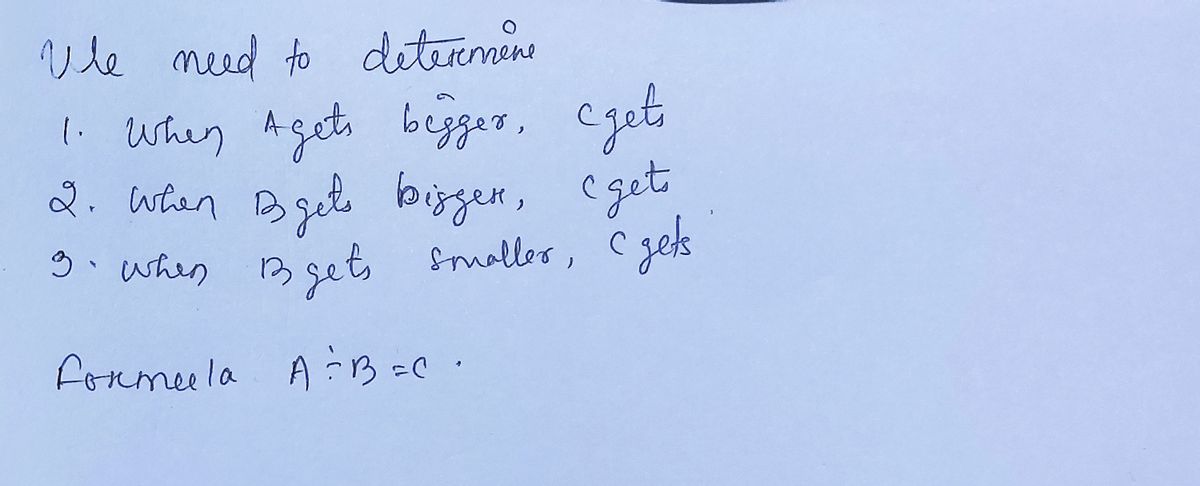 We need to determine
1. When A gets bigger, C gets
2. When B gets bigger, C gets
3. when B gets smaller, C gets
formula A ÷ B = C .